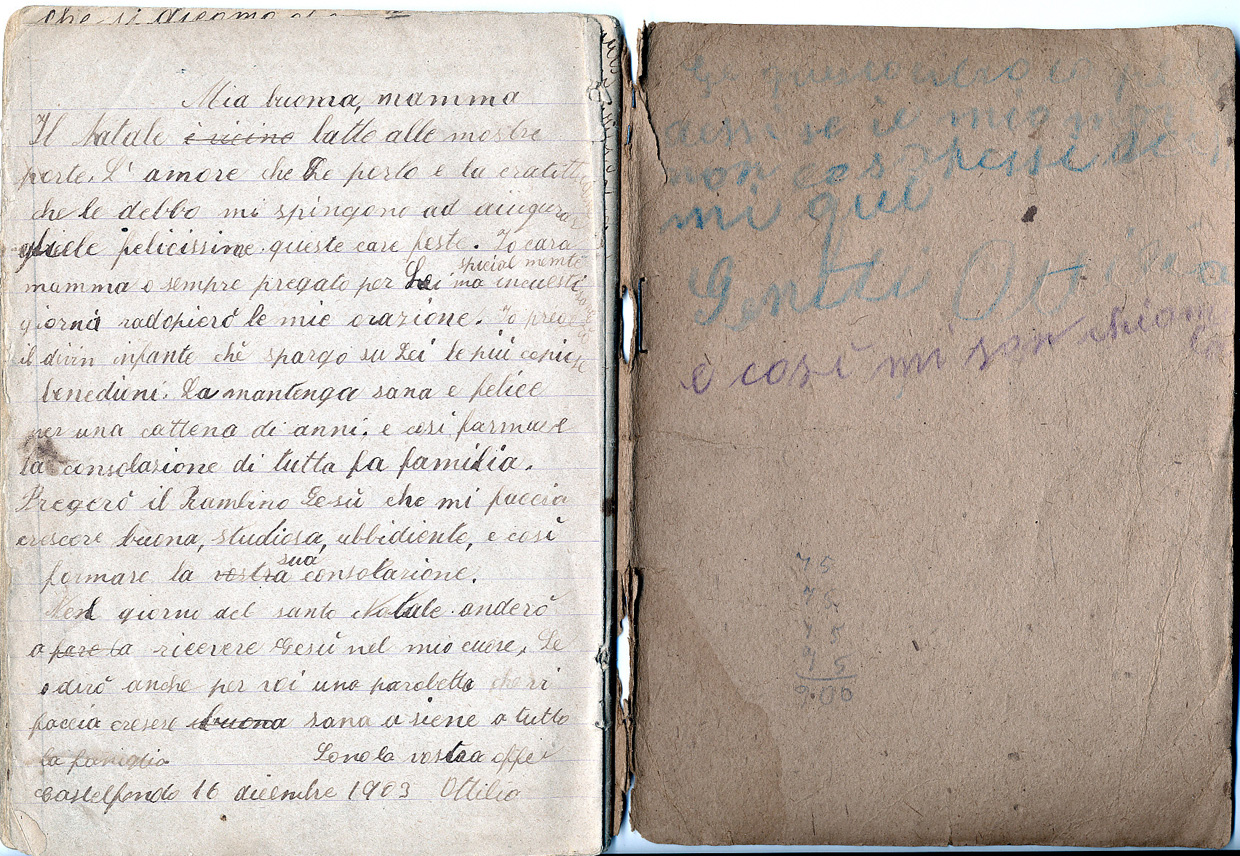 che si dicono
Mia buona, mamma
Il Natale è vicino batte alle nostre
porte. L' amore che Le porto e la gratit
che le debbo mi spingono ad augurar
gliele felicissime queste care feste. Io cara
mamma o sempre pregato per Lei ma specialmente in questi
giorni radopierò le mie orazione. Io prego
il divin infante chè sparga su Lei le più copiose
benedizni. La mantenga sana e felice
per una cattena di anni. e così formare
la consolazione di tutta la familia.
Pregerò il Bambino Gesù che mi faccia
crescere buona, studiosa, ubbidiente, e così
formare la vostra sua consolazione.
Nel giorno del santo Natale anderò
a fare la ricevere Gesù nel mio cuore, Le
dirò anche per voi una parobetta che vi
faccia cresere buona sana o siene a tutto
la famiglia Sono la vostra affe
Castelfondo 16 dicembre 1903 Ottilia
se il mio nome
non
mi qui
Genetti Ottilia
e così mi son chiam
ta
75
75
75
75
9.00